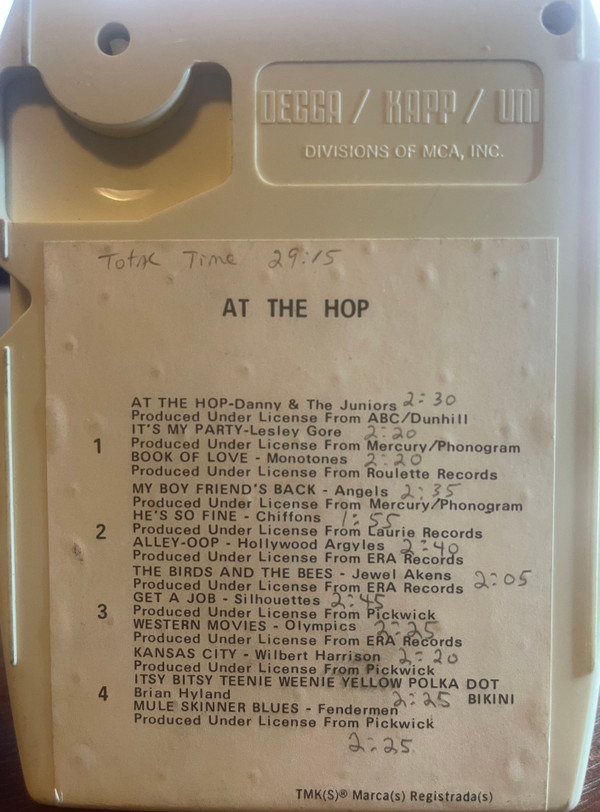 DECCA / KAPP / UNI
DIVISIONS OF MCA, INC.
Total Time 29:15
AT THE HOP
AT THE HOP-Danny & The Juniors 2:30
Produced Under License From ABC/Dunhill
IT'S MY PARTY-Lesley Gore 2:20
1 Produced Under License From Mercury/Phonogram
BOOK OF LOVE - Monotones 2:20
Produced Under License From Roulette Records
MY BOY FRIEND'S BACK - Angels 2:35
Produced Under License From Mercury/Phonogram
HE'S SO FINE - Chiffons 1:55
2 Produced Under License From Laurie Records
ALLEY-OOP - Hollywood Argyles 2:40
Produced Under License From ERA Records
THE BIRDS AND THE BEES - Jewel Akens 2:05
Produced Under License From ERA Records
GET A JOB - Silhouettes 2:45
3 Produced Under License From Pickwick
WESTERN MOVIES - Olympics 2:25
Produced Under License From ERA Records
KANSAS CITY - Wilbert Harrison 2:20
Produced Under License From Pickwick
ITSY BITSY TEENIE WEENIE YELLOW POLKA DOT
4 Brian Hyland 2:25 BIKINI
MULE SKINNER BLUES - Fendermen
Produced Under License From Pickwick
2:25
TMK(S)® Marca(s) Registrada(s)